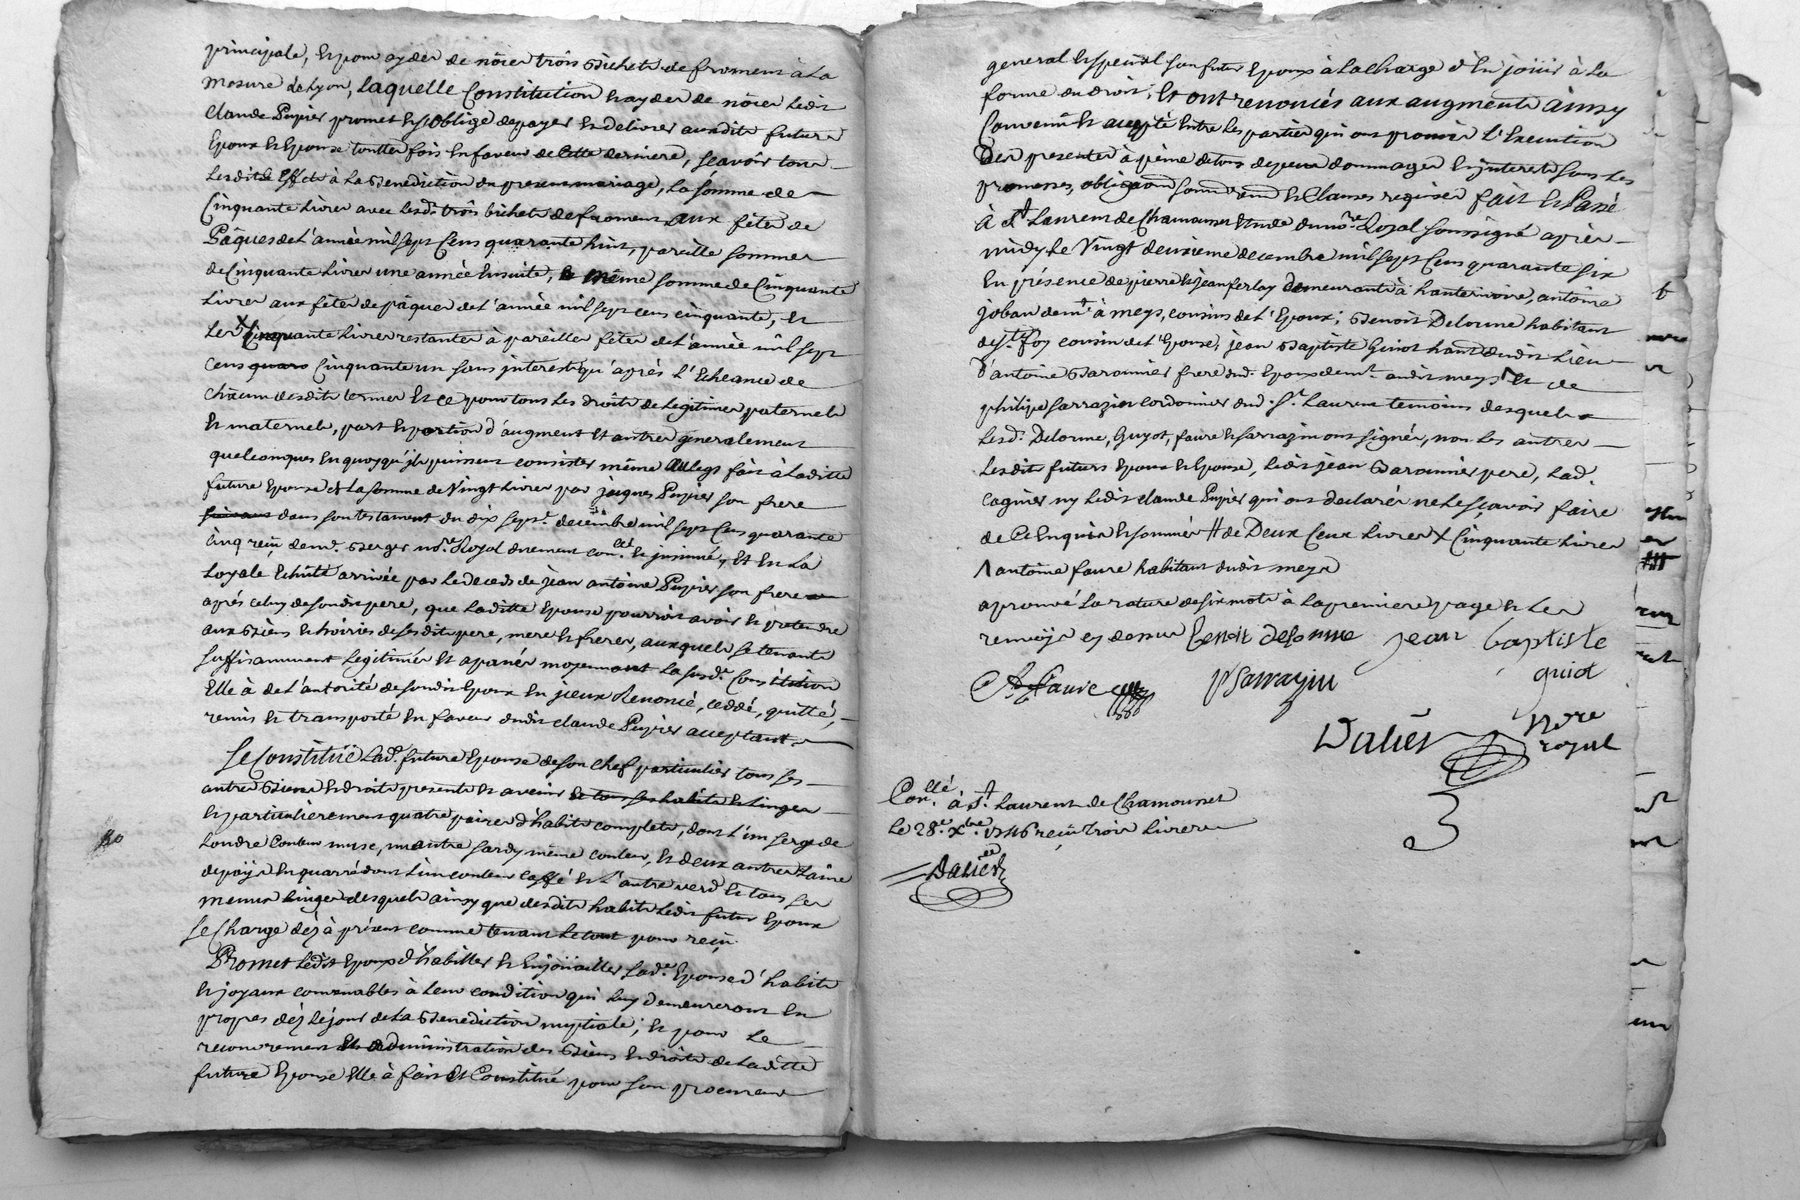 principale, et pour ayder de nôces trois bichets de froment à la
mesure de Lyon, laquelle Constitution et ayder de nôces ledit
Claude Pupier promet et s'oblige de payer et delivrer auxdits futurs
Epoux et Epouse touttes fois en faveur de cette derniere, sçavoir tous
lesdits effets à la Benediction du present mariage, la sómme de
Cinquante livres avec lesd. trois bichets de froment aux fêtes de
Pâques de l'année mil sept Cens quarante huit, pareille somme
de Cinquante livres une année ensuite, même somme de Cinquante
livres aux fêtes de pâques de l'année mil sept cens cinquante, et
les X Cinquante livres restantes à pareilles fêtes de l'année mil sept
cens quaro Cinquante un sans interests qu'aprés l'Echeance de
chacun desdits termes et ce pour tous les droits de legitimes paternels
et maternels, part et portion d'augment et autres generalement
quelconques en quoy qu'ils puissent consister même au legs fait à laditte
future Epouse de la somme de Vingt livres par jacques Pupier son frere
dans son testament du dix sept.e decembre mil sept Cens quarante
cinq reçu de me. Berger no.re Royal duement con.lé et jnsinué, et en la
loyale Echûte arrivée par le deceds de jean antoine Pupier son frere
aprés celuy de sondit pere, que laditte Epouse pourroit avoir et prétendre
aux Biens et hoiries de sesdits pere, mere et freres, auxquels se tenants
suffisamment legitimés et apanés moyennant la susd.e Constitution
Elle à de l'autorité de sondit Epoux en jceux Renoncé, ceddé, quitté,
remis et transporté en faveur dudit Claude Pupier acceptant.
Se Constitüe lad. future Epouse de son chef particulier tous ses
autres Biens et droits presents et avenir et tous ses habits et linges
et particulierement quatre paires d'habits complets, dont l'un serge de
Londre couleur muse, un autre sardy même couleur, et deux autres laine
de pays en quarré dont l'un couleur caffé et l'autre verd et tous ses
menus linges desquels ainsy que desdits habits ledit futur Epoux
se Charge dés à présent comme tenant le tout pour reçu.
Promet ledit Epoux d'habiller et Enjoüailler lad.e Epouse d'habits
et joyaux convenables à leur condition qui luy demeureront en
propres dés le jour de la Benediction nuptiale; et pour le
recouvrement et administration des Biens et droits de laditte
future Epouse Elle à fait et Constitué pour son procureur
general et special son futur Epoux à la charge d'en joüir à la
forme du droit; et ont renoncés aux augments ainsy
Convenu et accepté entre les parties qui ont promis l'Execution
Des presentes à peine de tous depens dommages et interests sous les
promesses, obligaons soumons renons et Clauses requises fait et Passé
à S.t Laurent de Chamousset Etude du no.re Royal soussigné aprés
midy le Vingt deuxieme decembre mil sept Cens quarante six
En présence de pierre et jean ferlay demeurants à hauterivoire, antoine
joban dem.t à meys, cousins de l'Epoux; Benoit Delorme habitant
de S.te foy cousin de l'Epouse, jean Baptiste Guiot hant dudit lieu
d'antoine Baronnier frere dud. Epoux dem.t audit meys Λ et de
philipe Sarrazin cordonnier dud. S.t Laurent temoins desquels
lesd. Delorme, Guyot, faure et Sarrazin ont signés, non les autres
lesdits futurs Epoux et Epouse, ledit jean Baronnier pere, lad.
cagnier ny ledit Claude Pupier qui ont declarés ne le sçavoir faire
de ce Enquis et sommés # de Deux Cens livres X Cinquante livres
Λ antoine faure habitant dudit meys
aprouvé la rature de six mots à la premiere page et les
renvoys cy dessus Benoit delorme jean baptiste
guiot
A Faure PSarrazin
Dalier N.re
royal
Con.llé à S.t Laurent de Chamousset
le 28.e X.bre 1746 reçu trois livres
Dalier
3